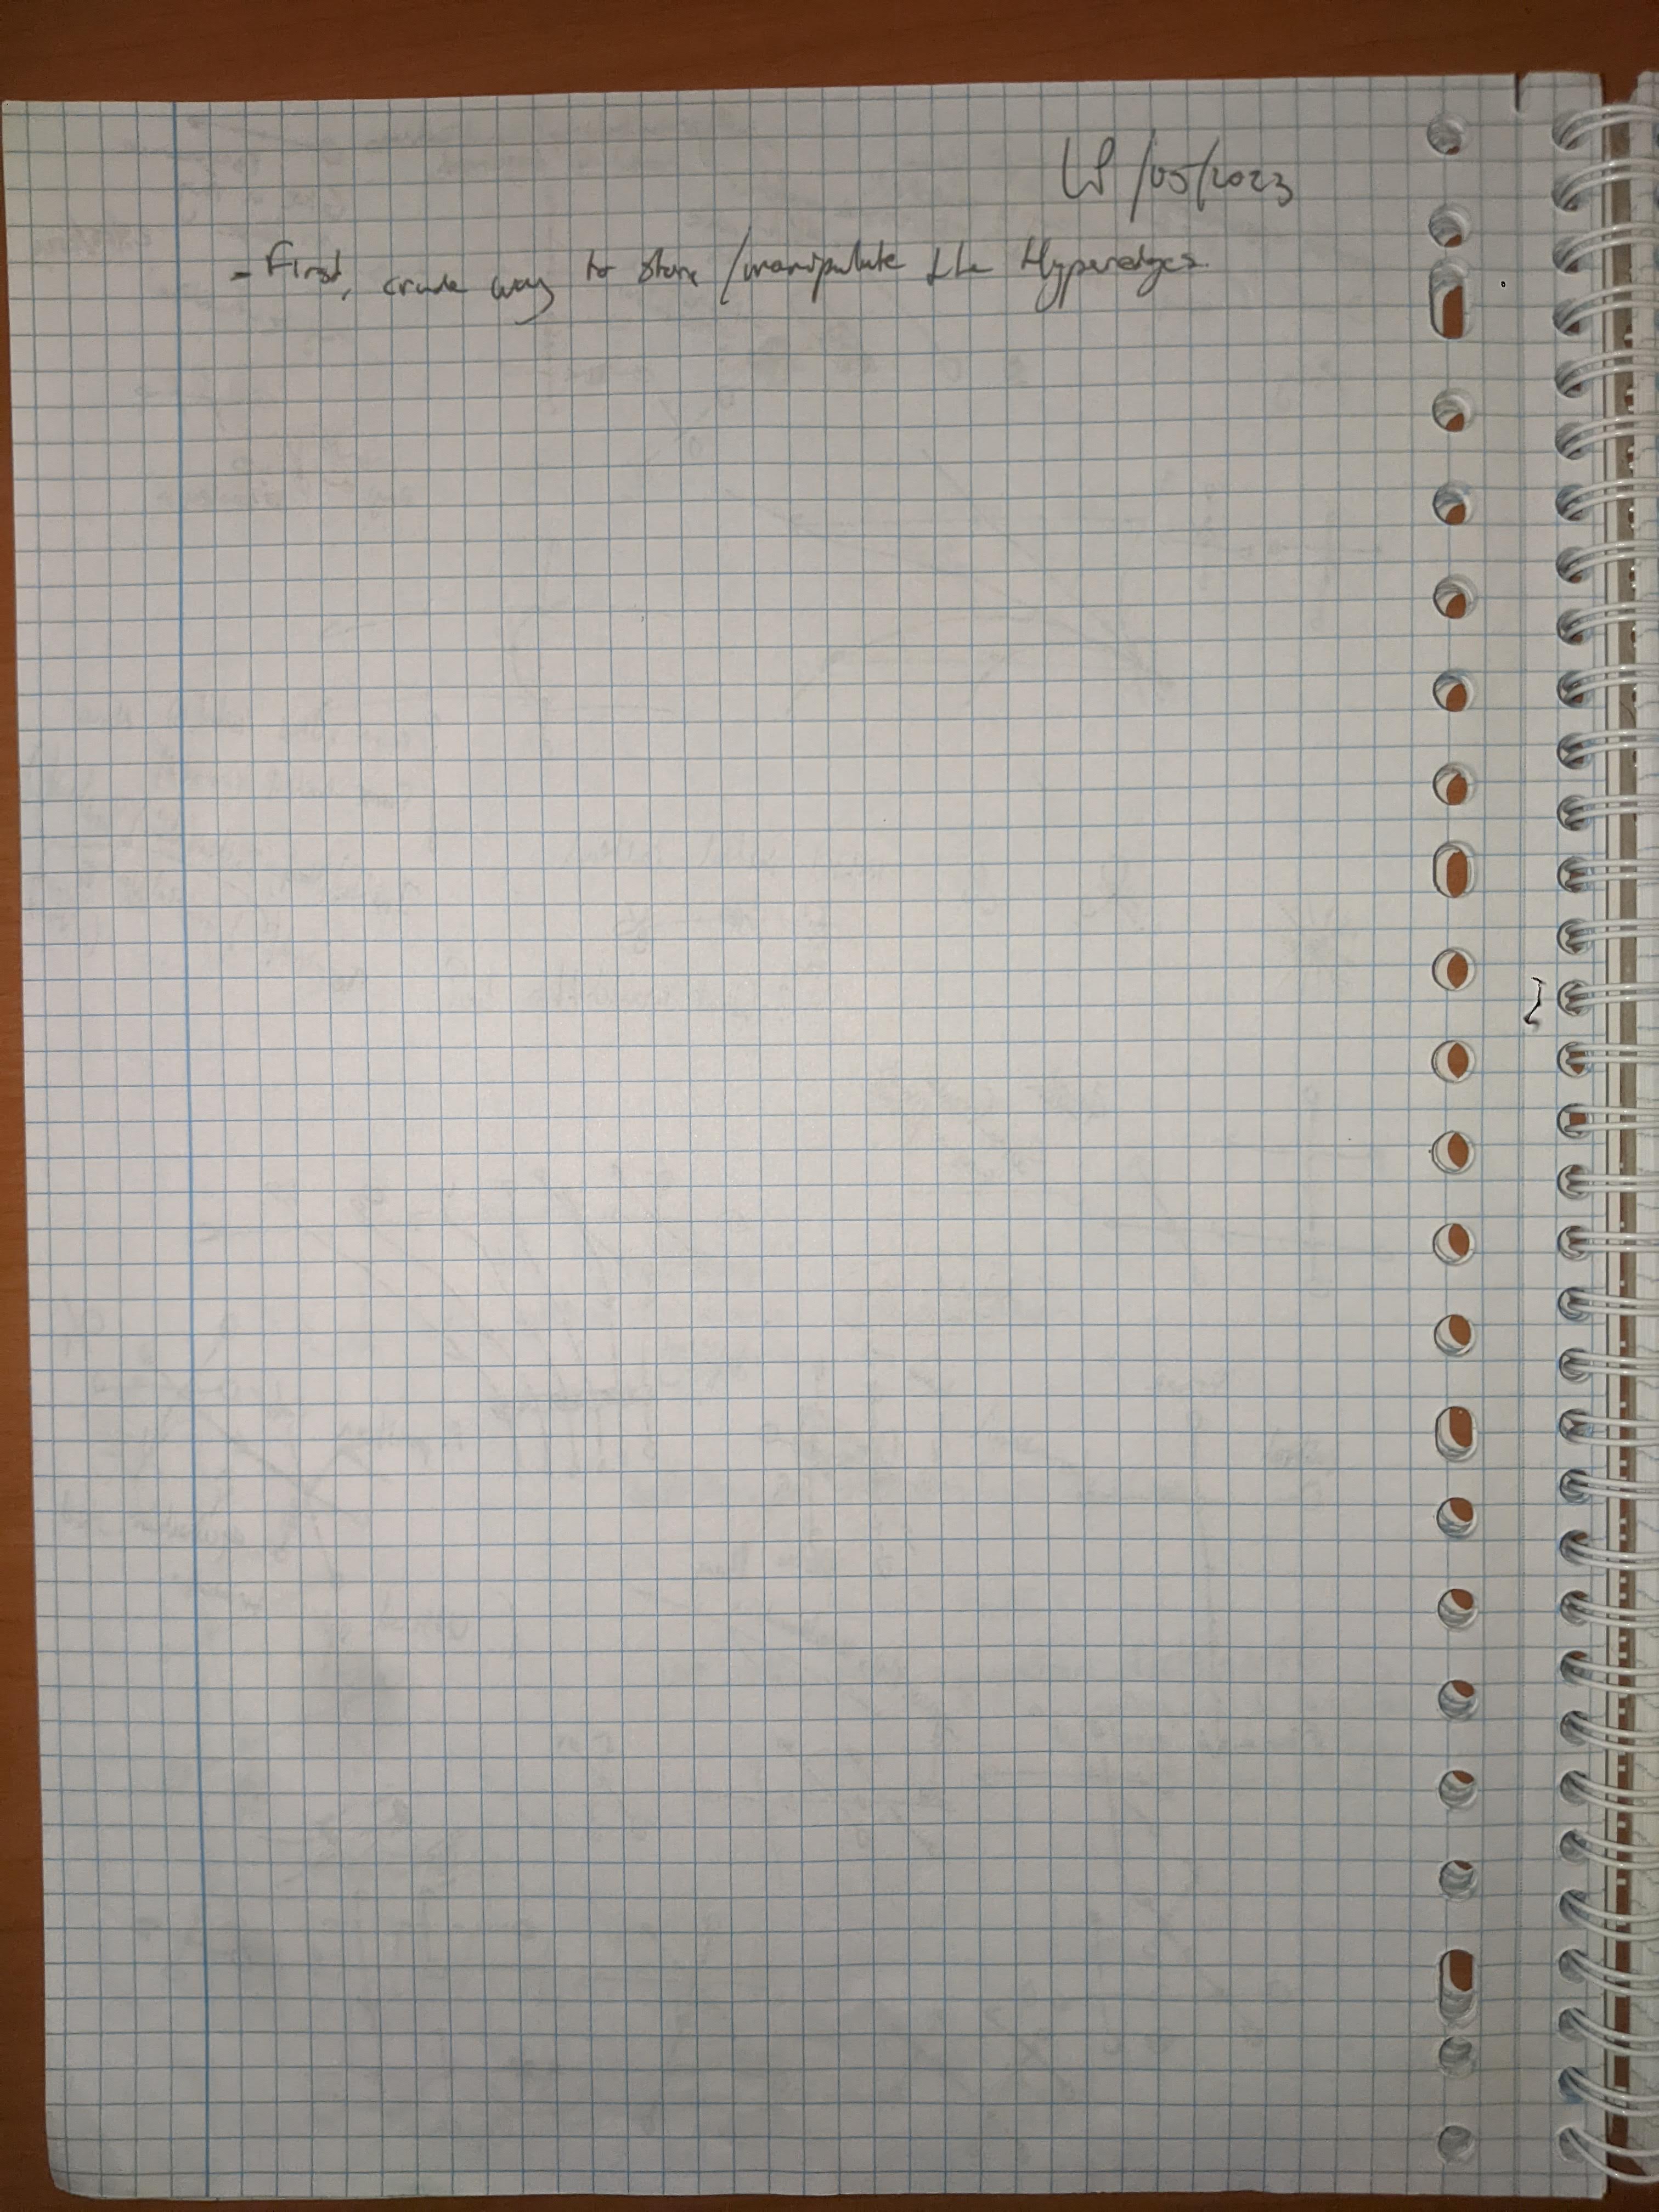 /05/2023
- First, crude way to store/manipulate the Hyperedges.